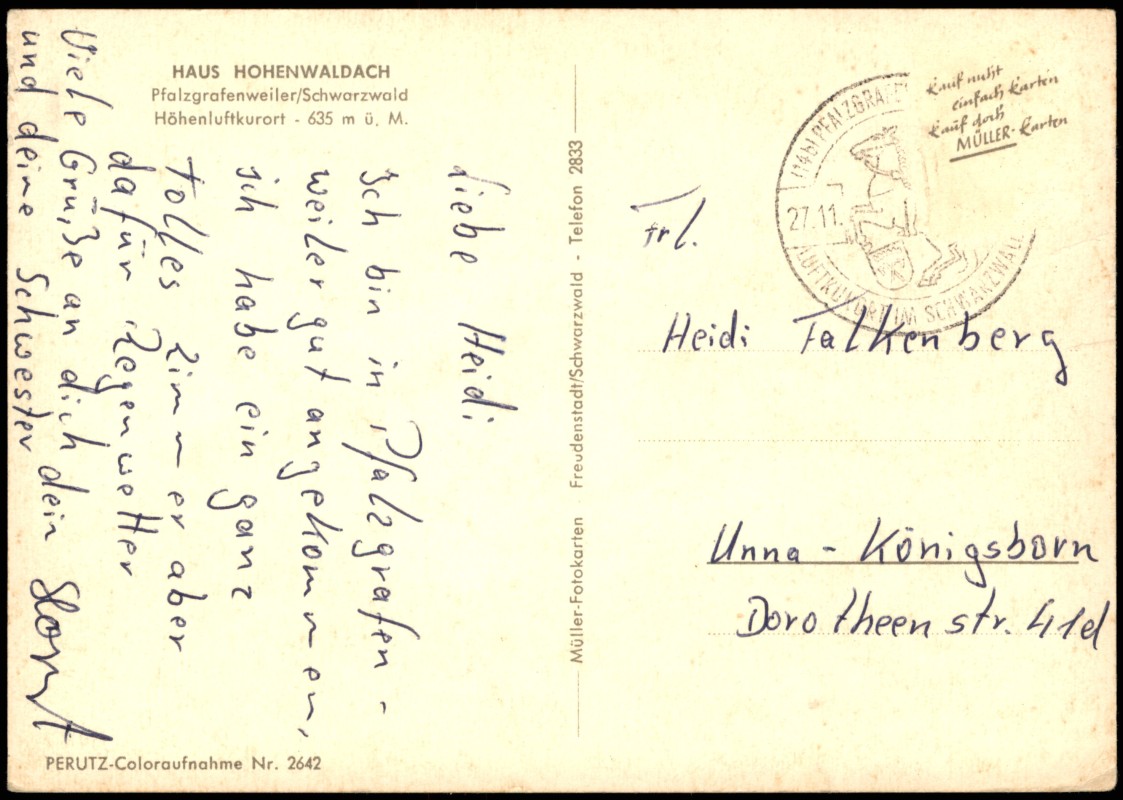 HAUS HOHENWALDACH
Pfalzgrafenweiler/Schwarzwald
Höhenluftkurort - 635 m ü. M.
Liebe Heidi
Ich bin in Pfalzgrafen-
weiler gut angekommen,
ich habe ein ganz
tolles Zimmer aber
dafür Regenwetter
Viele Grüße an dich
und deine Schwester dein Horst
PERUTZ-Coloraufnahme Nr. 2642
Müller-Fotokarten Freudenstadt/Schwarzwald - Telefon 2833
(14b) PFALZGRAFE
27.11.
LUFTKURORT IM SCHWARZWAL
Kauf nicht
einfach Karten
Kauf doch
MÜLLER-Karten
Frl.
Heidi Falkenberg
Unna - Königsborn
Dorotheenstr. 41d